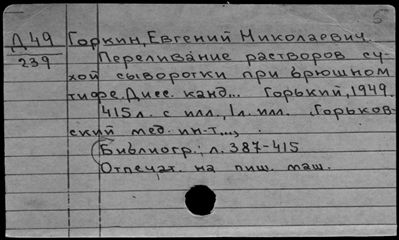 5
Д 49
239
Горкин, Евгений Николаевич.
Переливание растворов су-
хой сыворотки при брюшном
тифе. Дисс. канд... Горький, 1949.
415 л. с илл., 1 л. илл. (Горьков-
ский мед. ин-т...).
Библиогр.: л. 387-415
Отпечат. на пиш. маш.